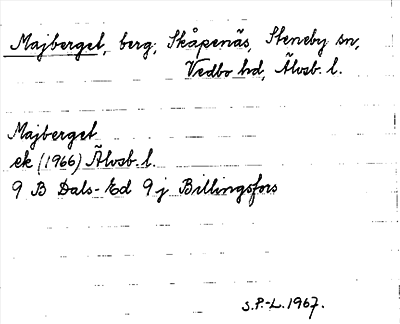 Majberget, berg, Skåpenäs, Steneby sn,
Vedbo hd, Älvsb. l.
Majberget
ek (1966) Älvsb. l.
9 B Dals-Ed 9 j Billingsfors
S.P.-L. 1967.